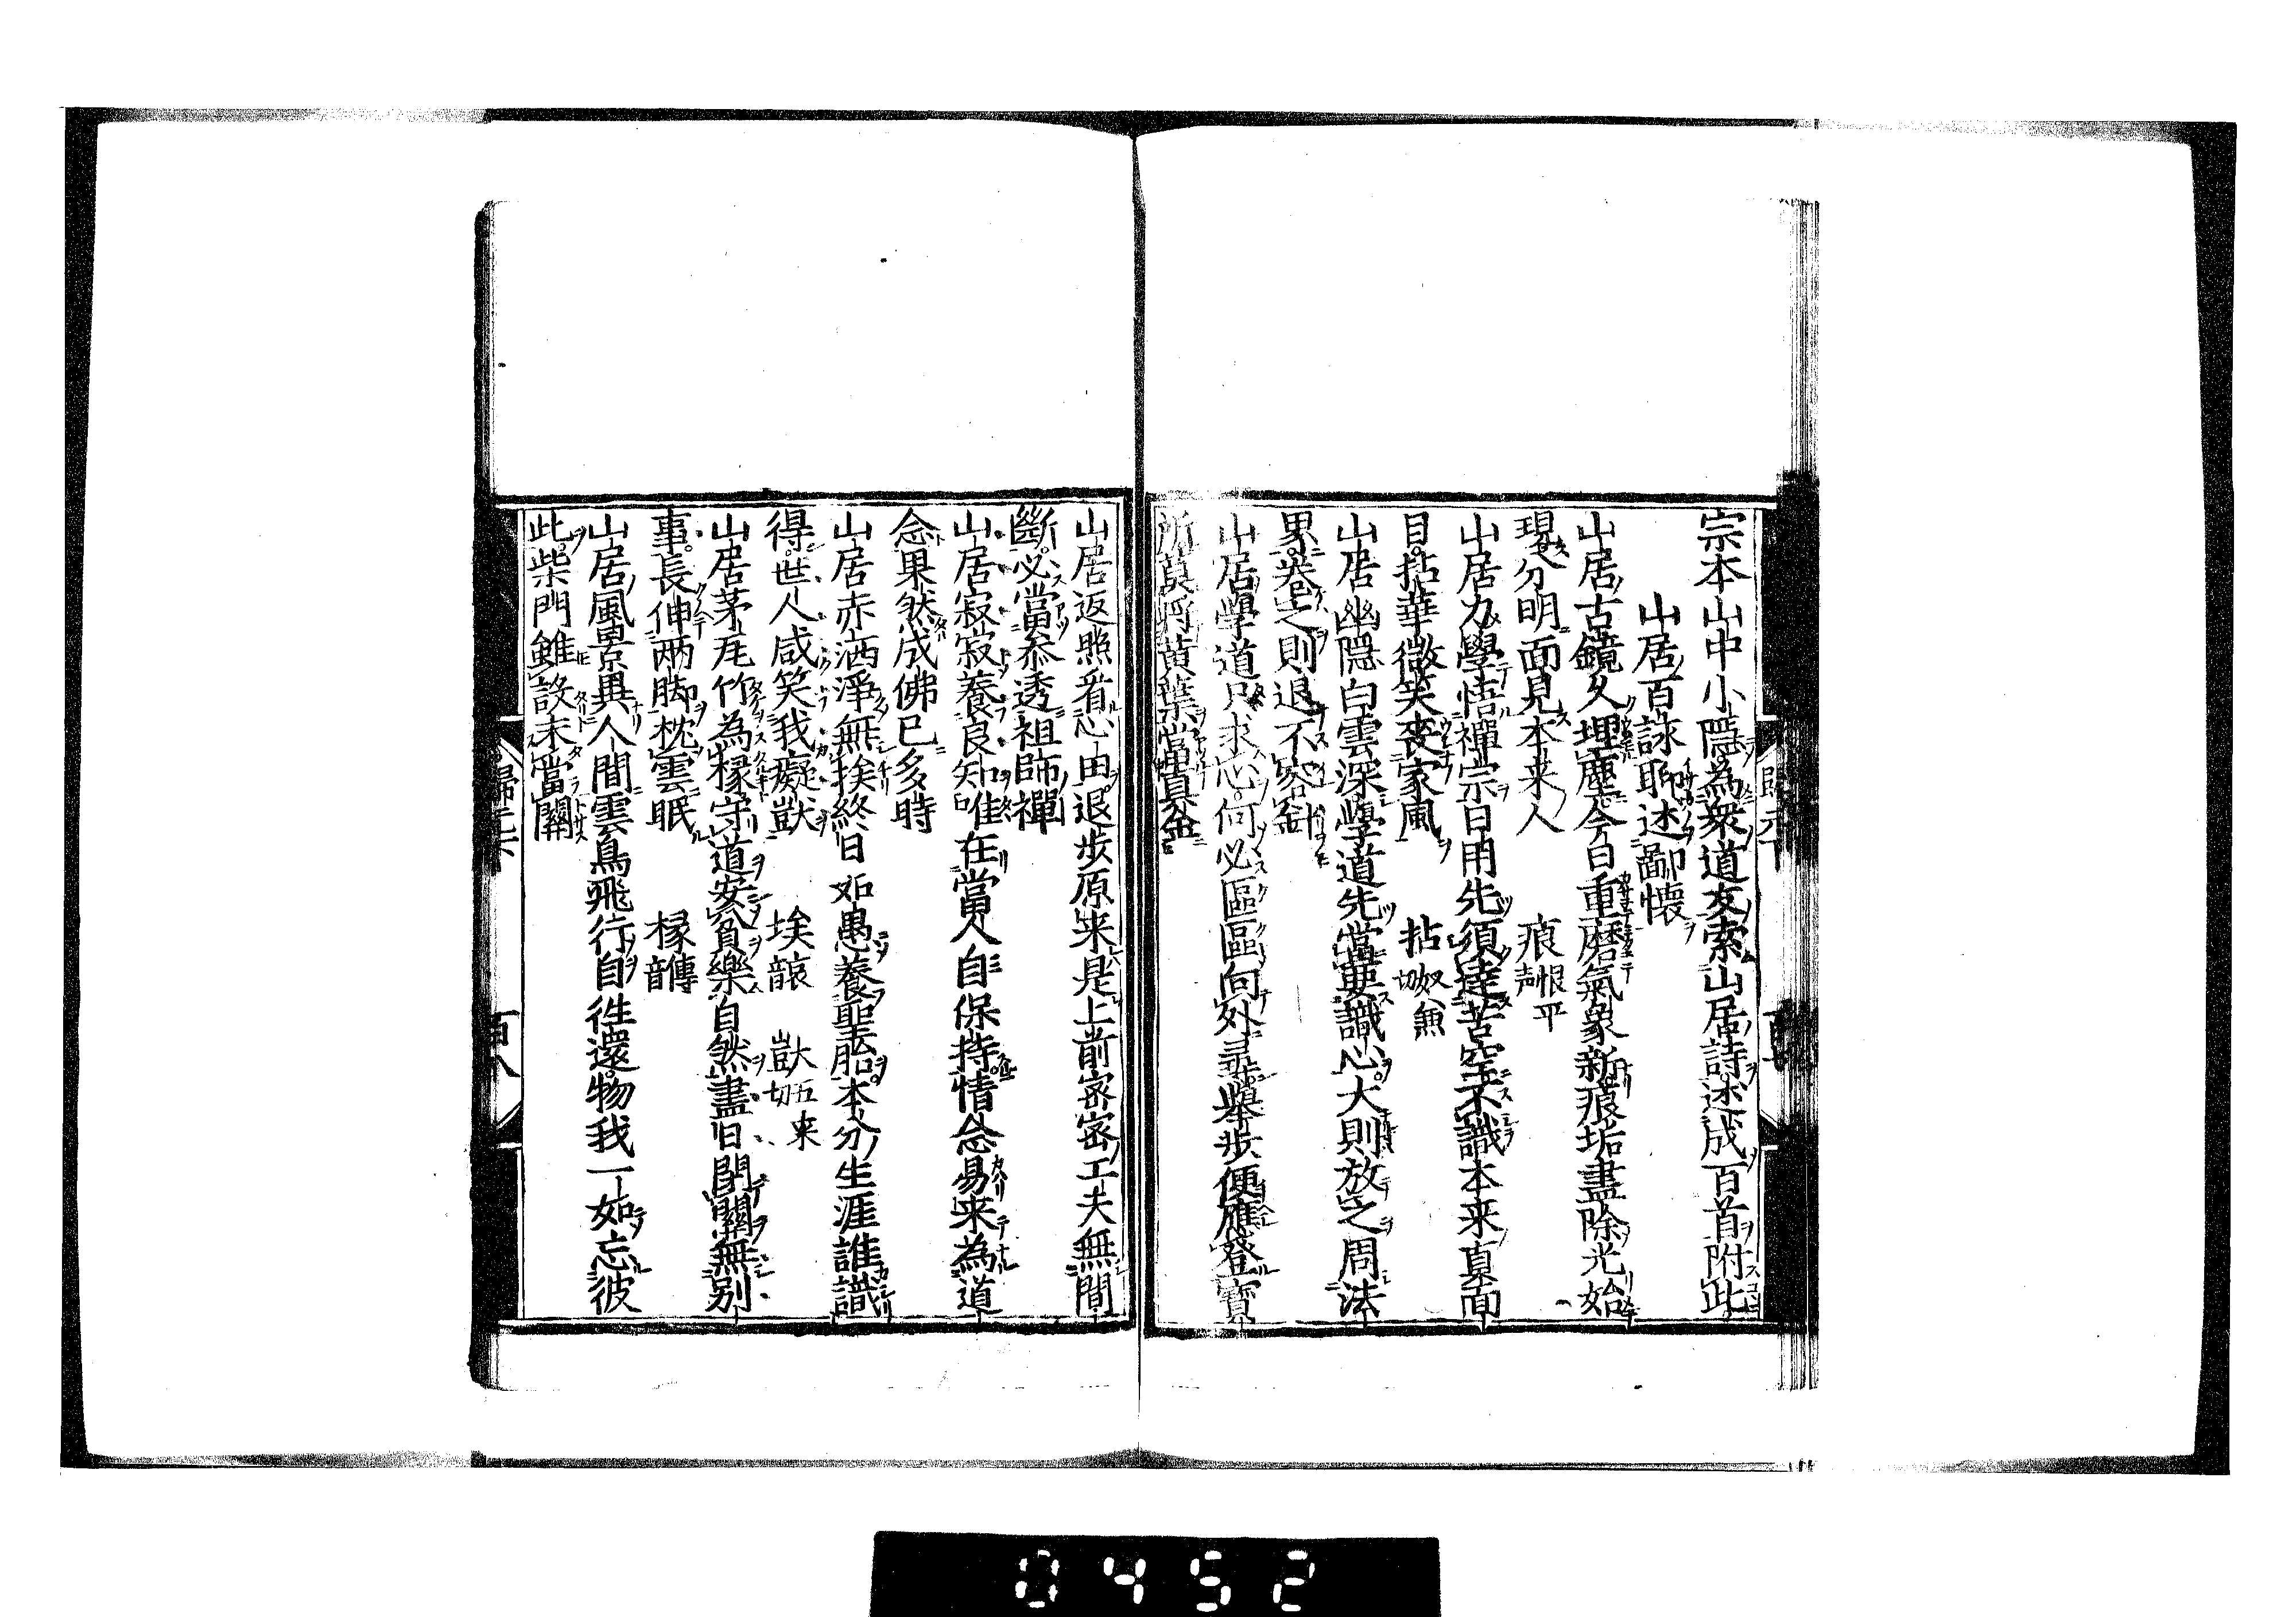 宗本山中小隱為衆道友索山居詩述成百首附此
山居百詠聊述鄙懷
山居古鏡久埋塵今日重磨氣象新痕垢盡除光始
現分明面見本来人　痕恨平声
山居力學悟禪宗日用先須達苦空不識本来真面
目拈華微笑喪家風　拈奴兼切
山居幽隱白雲深學道先當要識心大則放之周法
界卷之則退不容針
山居學道只求心何必區區向外尋擧步便應登寶
所莫將黄葉當真金
山居返照看心由退步原来是上前密密工夫無間
斷必當叅透祖師禪
山居寂寂養良知唯在當人自保持情念易来為道
念果然成佛已多時
山居赤洒淨無挨終日如愚養聖胎本分生涯誰識
得世人咸笑我癡獃　埃音哀　獃五来切
山居茅屋竹為椽守道安貧樂自然盡日閉關無別
事長伸兩脚枕雲眠　椽音傳
山居風景異人間雲鳥飛行自往還物我一如忘彼
此柴門雖設未當關
歸元下
百八
0452